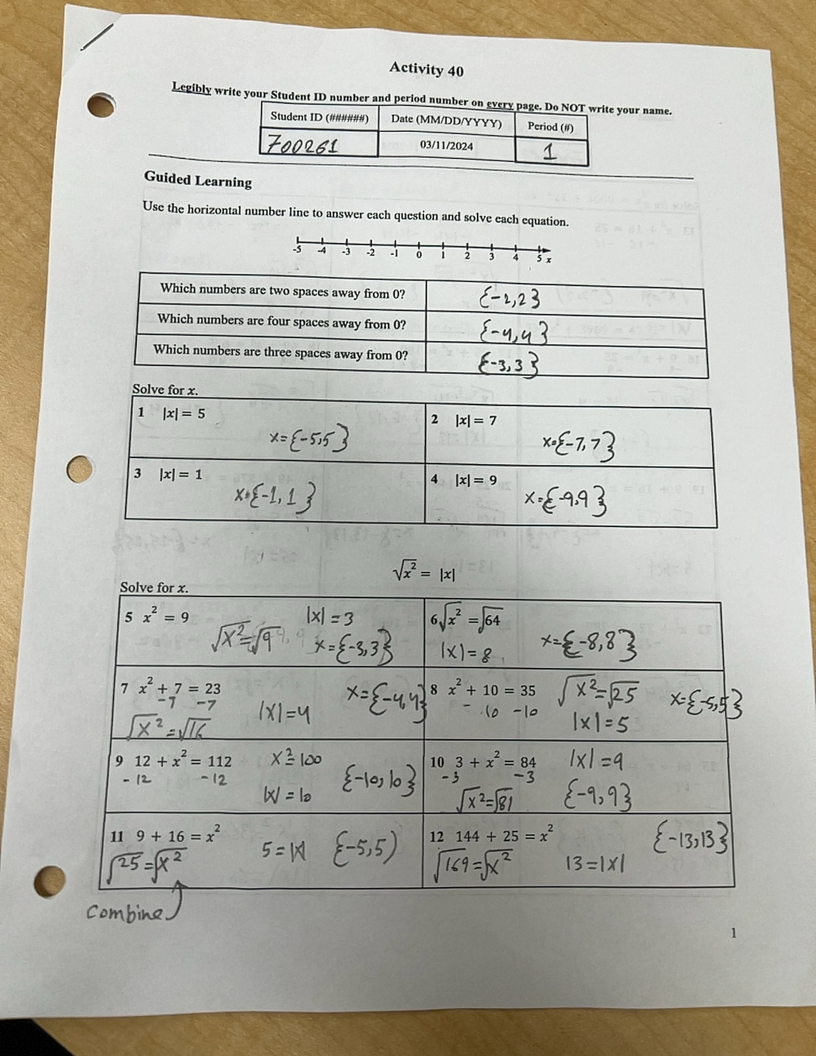 Activity 40
Legibly write your Student ID number and period number on every page. Do NOT write your name.
Student ID (######) Date (MM/DD/YYYY) Period (#)
700261 03/11/2024 1
Guided Learning
Use the horizontal number line to answer each question and solve each equation.
-5 -4 -3 -2 -1 0 1 2 3 4 5 x
Which numbers are two spaces away from 0? {-2,2}
Which numbers are four spaces away from 0? {-4,4}
Which numbers are three spaces away from 0? {-3,3}
Solve for x.
1 |x| = 5 x={-5,5}
2 |x| = 7 x={-7,7}
3 |x| = 1 x={-1,1}
4 |x| = 9 x={-9,9}
√x² = |x|
Solve for x.
5 x² = 9 |x|=3
√x²=√9 x={-3,3}
6 √x² = √64
|x|=8 x={-8,8}
7 x² + 7 = 23 x={-4,4}
-7 -7
√x²=√16 |x|=4
8 x² + 10 = 35 √x²=√25 x={-5,5}
-10 -10 |x|=5
9 12 + x² = 112 x²=100
-12 -12 |x|=10 {-10,10}
10 3 + x² = 84 |x|=9
-3 -3
√x²=√81 {-9,9}
11 9 + 16 = x²
√25=√x² 5=|x| {-5,5)
12 144 + 25 = x² {-13,13}
√169=√x² 13=|x|
combine
1